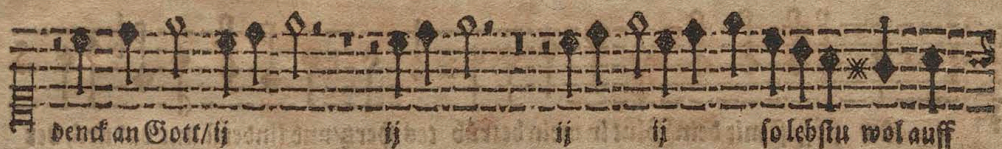 denck an Gott/ ij ij ij ij so lebstu wol auff